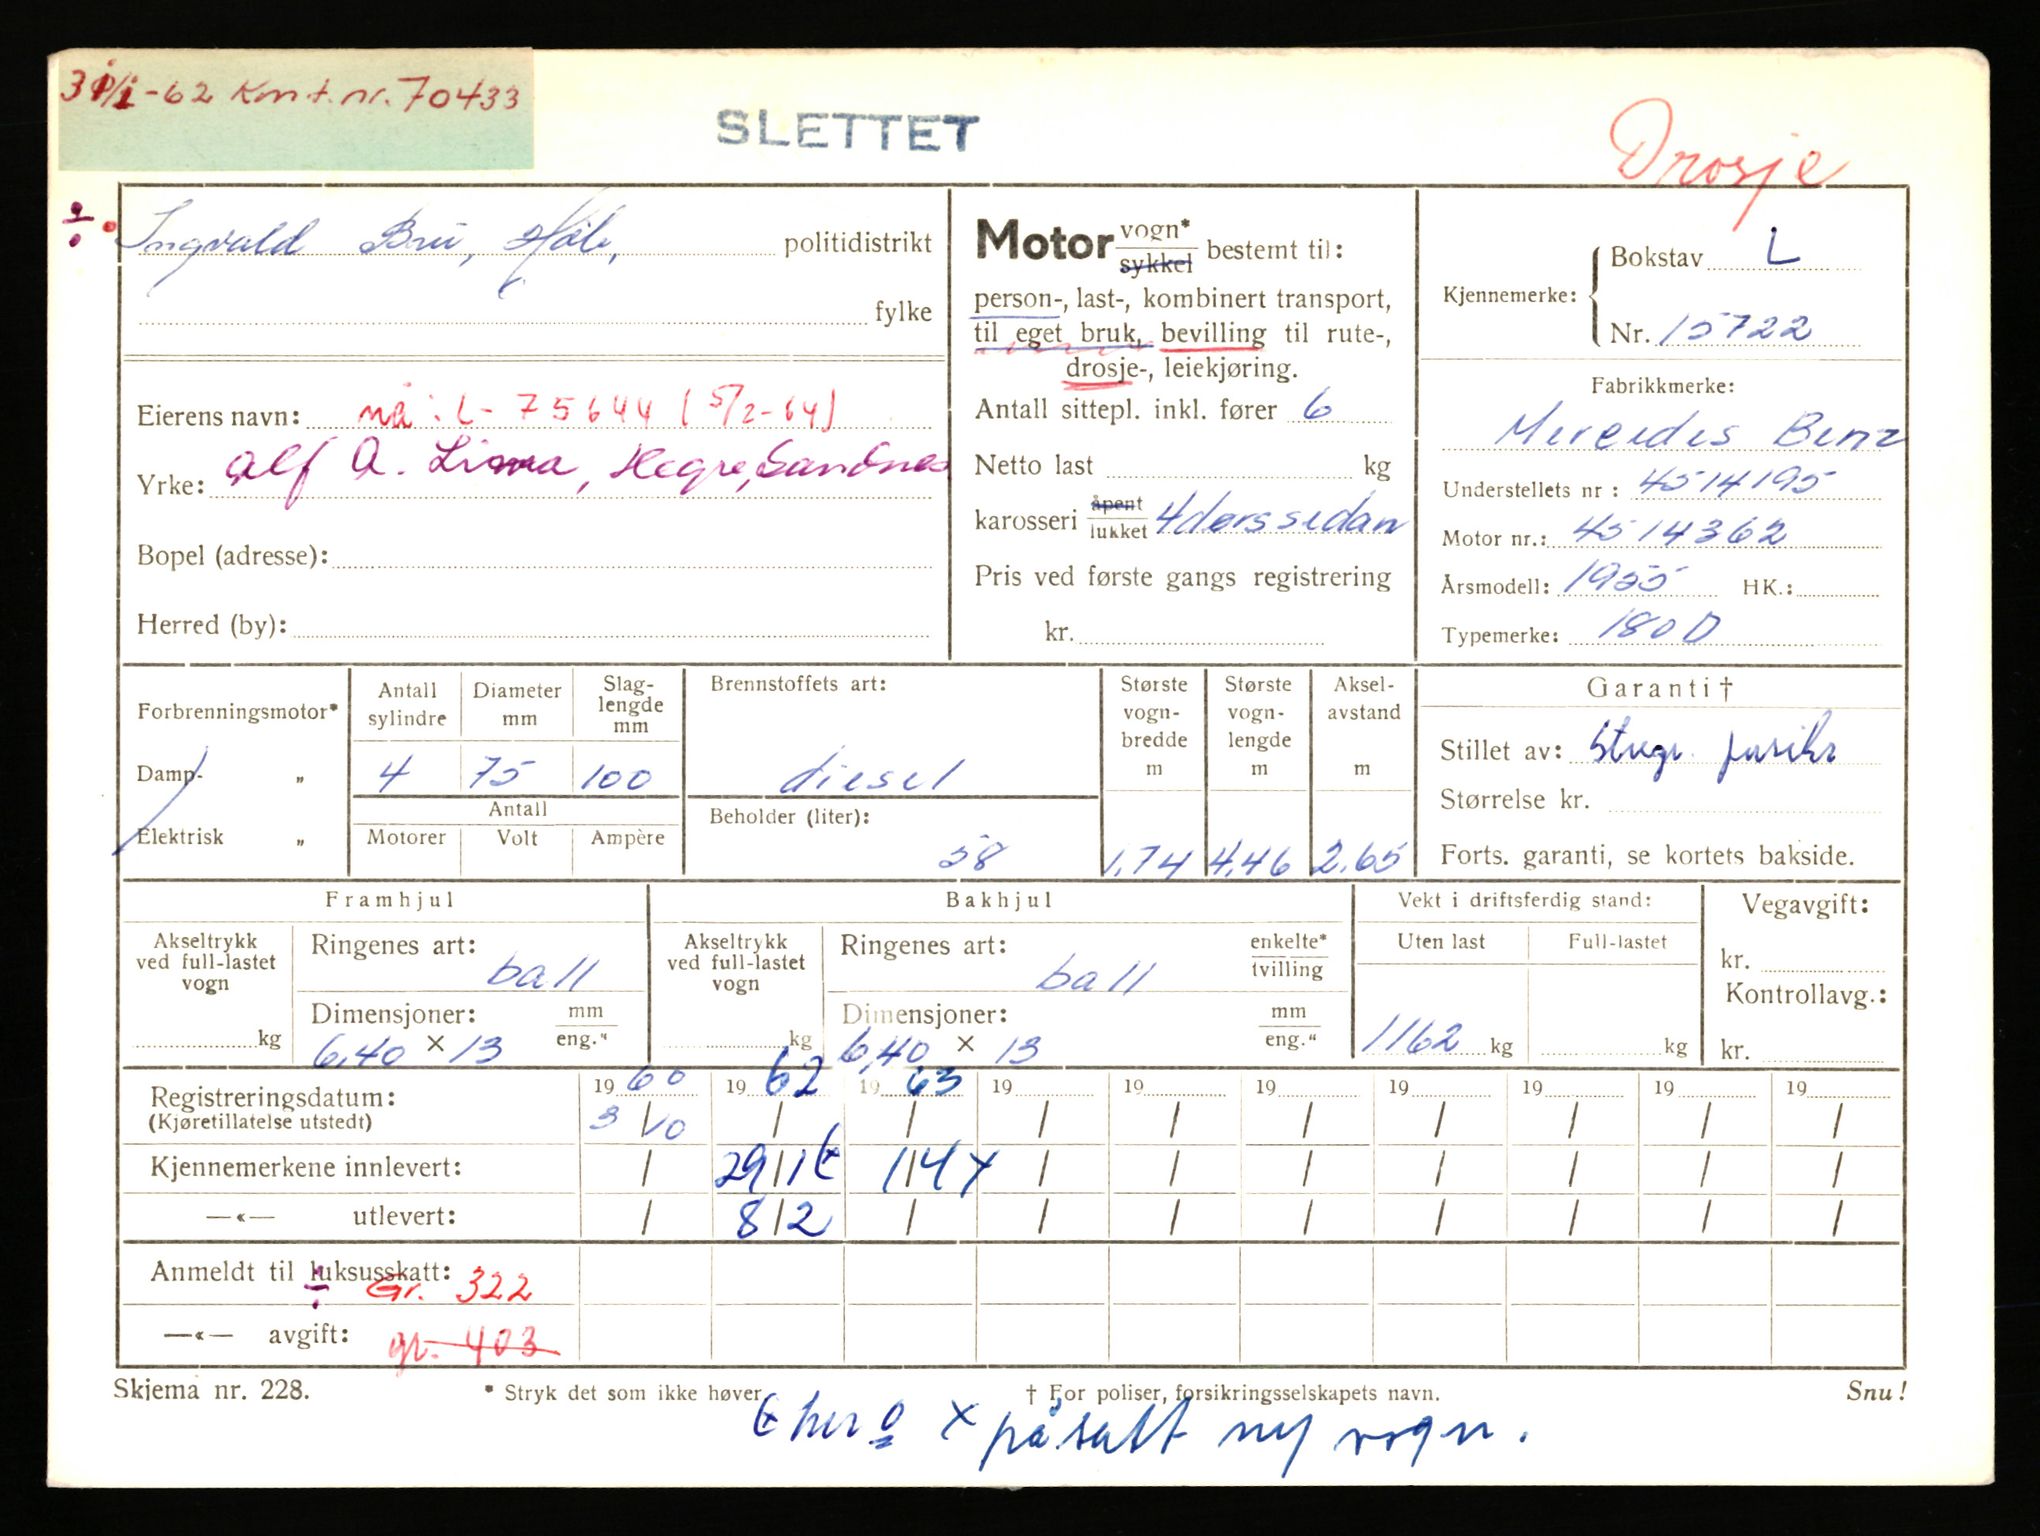 31/1-62 Kont.nr. 70433
SLETTET
Drosje
Ingvald Bru, Høle, politidistrikt
fylke
Eierens navn: nå: L-75644 (5/2-64)
Yrke: Alf A. Lima, Hegre, Sandnes
Bopel (adresse):
Herred (by):
Motor vogn* / sykkel bestemt til:
person-, last-, kombinert transport,
til eget bruk, bevilling til rute-,
drosje-, leiekjøring.
Antall sittepl. inkl. fører 6
Netto last kg
karosseri åpent / lukket 4dørs sedan
Pris ved første gangs registrering
kr.
Kjennemerke: Bokstav L
Nr. 15722
Fabrikkmerke:
Mercedes Benz
Understellets nr : 4514195
Motor nr.: 4514362
Årsmodell: 1955 HK.:
Typemerke: 180 D
Forbrenningsmotor*
Damp- „
Elektrisk „
Antall sylindre Diameter mm Slag-lengde mm
4 75 100
Antall
Motorer Volt Ampère
Brennstoffets art:
diesel
Beholder (liter):
58
Største vogn-bredde m 1,74
Største vogn-lengde m 4,46
Aksel-avstand m 2,65
Garanti †
Stillet av:
Størrelse kr.
Forts. garanti, se kortets bakside.
Framhjul
Akseltrykk ved full-lastet vogn kg
Ringenes art: ball
Dimensjoner: mm / eng."
6,40 × 13
Bakhjul
Akseltrykk ved full-lastet vogn kg
Ringenes art: ball enkelte* / tvilling
Dimensjoner: mm / eng."
6,40 × 13
Vekt i driftsferdig stand:
Uten last Full-lastet
1162 kg kg
Vegavgift:
kr.
Kontrollavg.:
kr.
19 60 19 62 19 63 19 19 19 19 19 19 19
Registreringsdatum: 3/10 / / / / / / / / /
(Kjøretillatelse utstedt)
Kjennemerkene innlevert: / 29/1 t 1/4 x / / / / / / /
—«— utlevert: / 8/2 / / / / / / / /
Anmeldt til luksusskatt: Gr. 322
—«— avgift: gr. 403
Skjema nr. 228.
* Stryk det som ikke høver
† For poliser, forsikringsselskapets navn.
Snu!
x påsatt ny vogn.